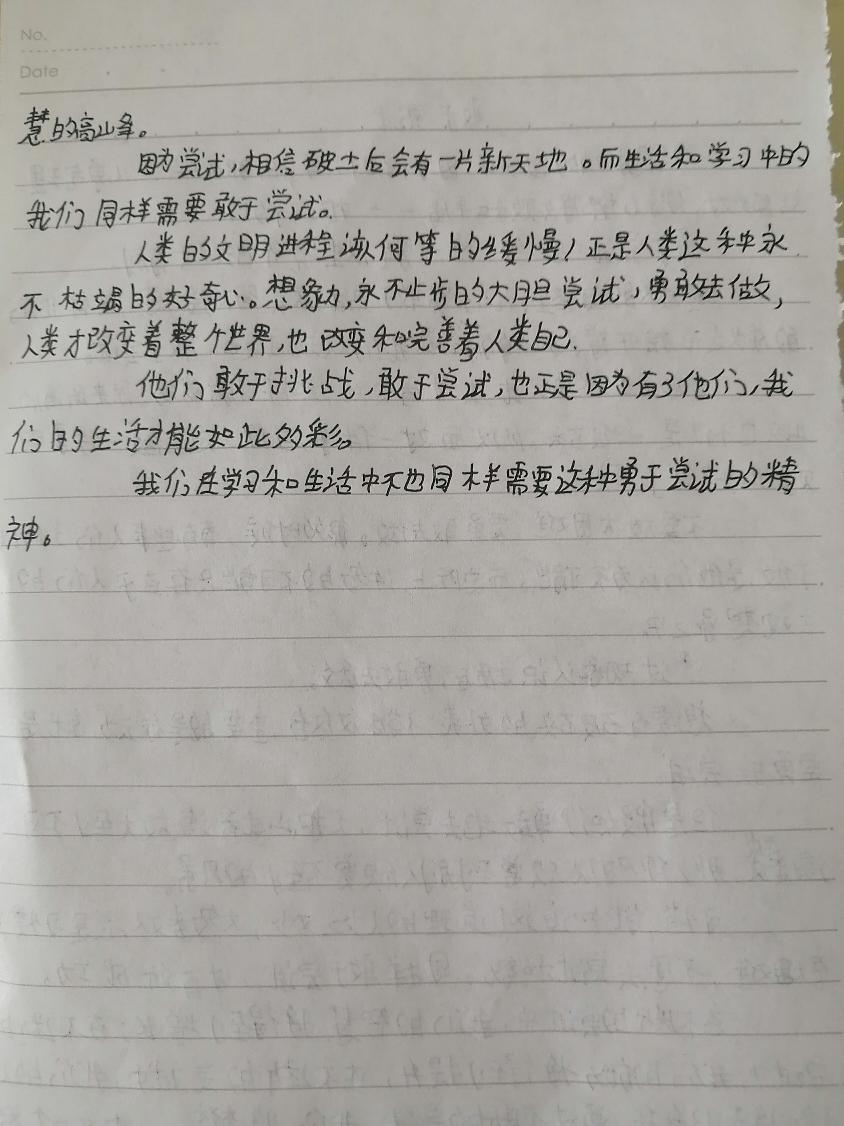 No.
Date
慧的高山峰。
因为尝试,相信破土后会有一片新天地。而生活和学习中的
我们同样需要敢于尝试。
人类的文明进程该何等的缓慢!正是人类这种永
不枯竭的好奇心。想象力,永不止步的大胆尝试,勇敢去做,
人类才改变着整个世界,也改变和完善着人类自己.
他们敢于挑战,敢于尝试,也正是因为有了他们,我
们的生活才能如此多彩。
我们在学习和生活中不也同样需要这种勇于尝试的精
神。